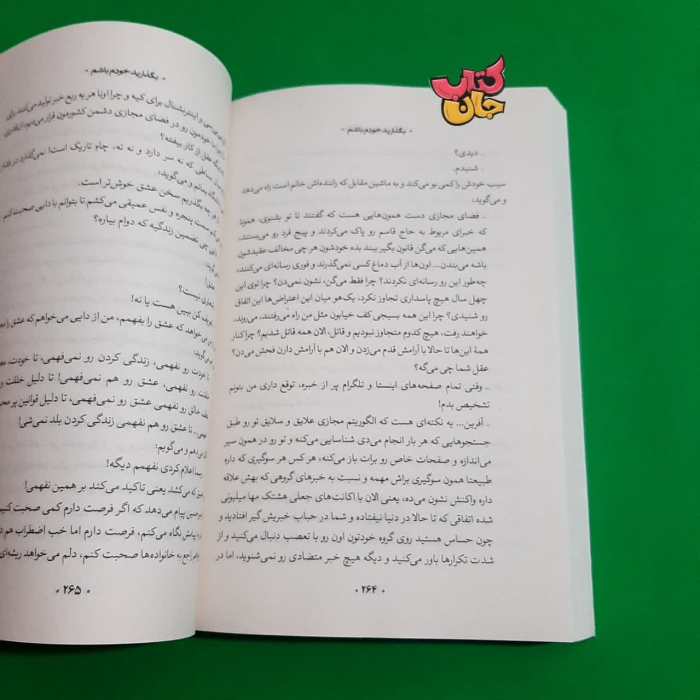 کتاب
جان
• بگذارید خودم باشم •
ـ دیدی؟
ـ شنیدم.
سیب خودش را کمی بو می‌کند و به ماشین مقابل که راننده‌اش خانم است راه می‌دهد
و می‌گوید:
ـ فضای مجازی دست همون‌هایی هست که گفتند تا تو بشنوی، همونا
که خبرای مربوط به حاج قاسم رو پاک می‌کردند و پیج فرد رو می‌بستند،
همین‌هایی که می‌گن قانون بگیر ببند بده خودشون هر چی مخالف عقیدشون
باشه می‌بندن... اون‌ها از آب دماغ کسی نمی‌گذرند و فوری رسانه‌ای می‌کنند،
چه‌طور این رو رسانه‌ای نکردند؟ چرا فقط می‌گن، نشون نمی‌دن؟ چرا توی این
چهل سال هیچ پاسداری تجاوز نکرد، یک‌هو میان این اعتراض‌ها این اتفاق
رو شنیدی؟ چرا این همه بسیجی کف خیابون مثل من راه می‌رفتند، می‌روند،
خواهند رفت، هیچ کدوم متجاوز نبودیم و قاتل، الان همه قاتل شدیم؟ چرا کنار
همهٔ این‌ها تا حالا با آرامش قدم می‌زدن و الان هم با آرامش دارن فحش می‌دن؟
عقل شما چی می‌گه؟
ـ وقتی تمام صفحه‌های اینستا و تلگرام پر از خبره، توقع داری من بتونم
تشخیص بدم!
ـ آفرین... یه نکته‌ای هست که الگوریتم مجازی علایق و سلایق تو رو طبق
جستجوهایی که هر بار انجام می‌دی شناسایی می‌کنه و تو رو در همون سیر
می‌اندازه و صفحات خاص رو برات باز می‌کنه، هر کس هر سوگیری که داره
طبیعتا همون سوگیری براش مهمه و نسبت به خبرهای گروهی که بهش علاقه
داره واکنش نشون می‌ده، یعنی الان با اکانت‌های جعلی هشتک مها میلیونی
شده اتفاقی که تا حالا در دنیا نیفتاده و شما در حباب خبریش گیر افتادید و
چون حساس هستید روی گروه خودتون اون رو با تعصب دنبال می‌کنید و از
شدت تکرارها باور می‌کنید و دیگه هیچ خبر متضادی رو نمی‌شنوید، اما در
• ۲۶۴ •
• بگذارید خودم باشم •
و اینترنشنال برای کیه و چرا اونا هر یه ربع خبر تولید می‌کنند برای
خودمون رو در فضای مجازی دشمن کشورمون قرار می‌دیم
عقل از کار بیفته؟
که نه سر دارد و نه ته، چاهِ تاریک است! نمی‌گذارد در فشار
بمانم و می‌گوید:
هر چه بگذریم سخن عشق خوش‌تر است.
سمت پنجره و نفس عمیقی می‌کشم تا بتوانم با دایی صحبت کنم
چی تضمین زندگیه که دوام بیاره؟
نیست؟
کن ببین هست یا نه!
می‌خواهد که عشق را بفهمم، من از دایی می‌خواهم که عشق را
می‌گوید:
تا خودت رو نفهمی، زندگی کردن رو نمی‌فهمی، تا خودت،
خلقت رو نفهمی، عشق رو هم نمی‌فهمی! تا دلیل خلقت
خالق رو نفهمی عشق رو نمی‌فهمی، تا دلیل قوانین
تا عشق رو هم نفهمی زندگی کردن بلد نمی‌شی!
و می‌گویم:
اعلام کردی نفهمم دیگه!
که می‌کشد یعنی تاکید می‌کند بر همین نفهمی!
پیام می‌دهد که اگر فرصت دارم کمی صحبت کنیم
نگاه می‌کنم، فرصت دارم اما خب اضطراب هم
راجع به خانواده‌ها صحبت کنم، دلم می‌خواهد ریشه‌ای
• ۲۶۵ •